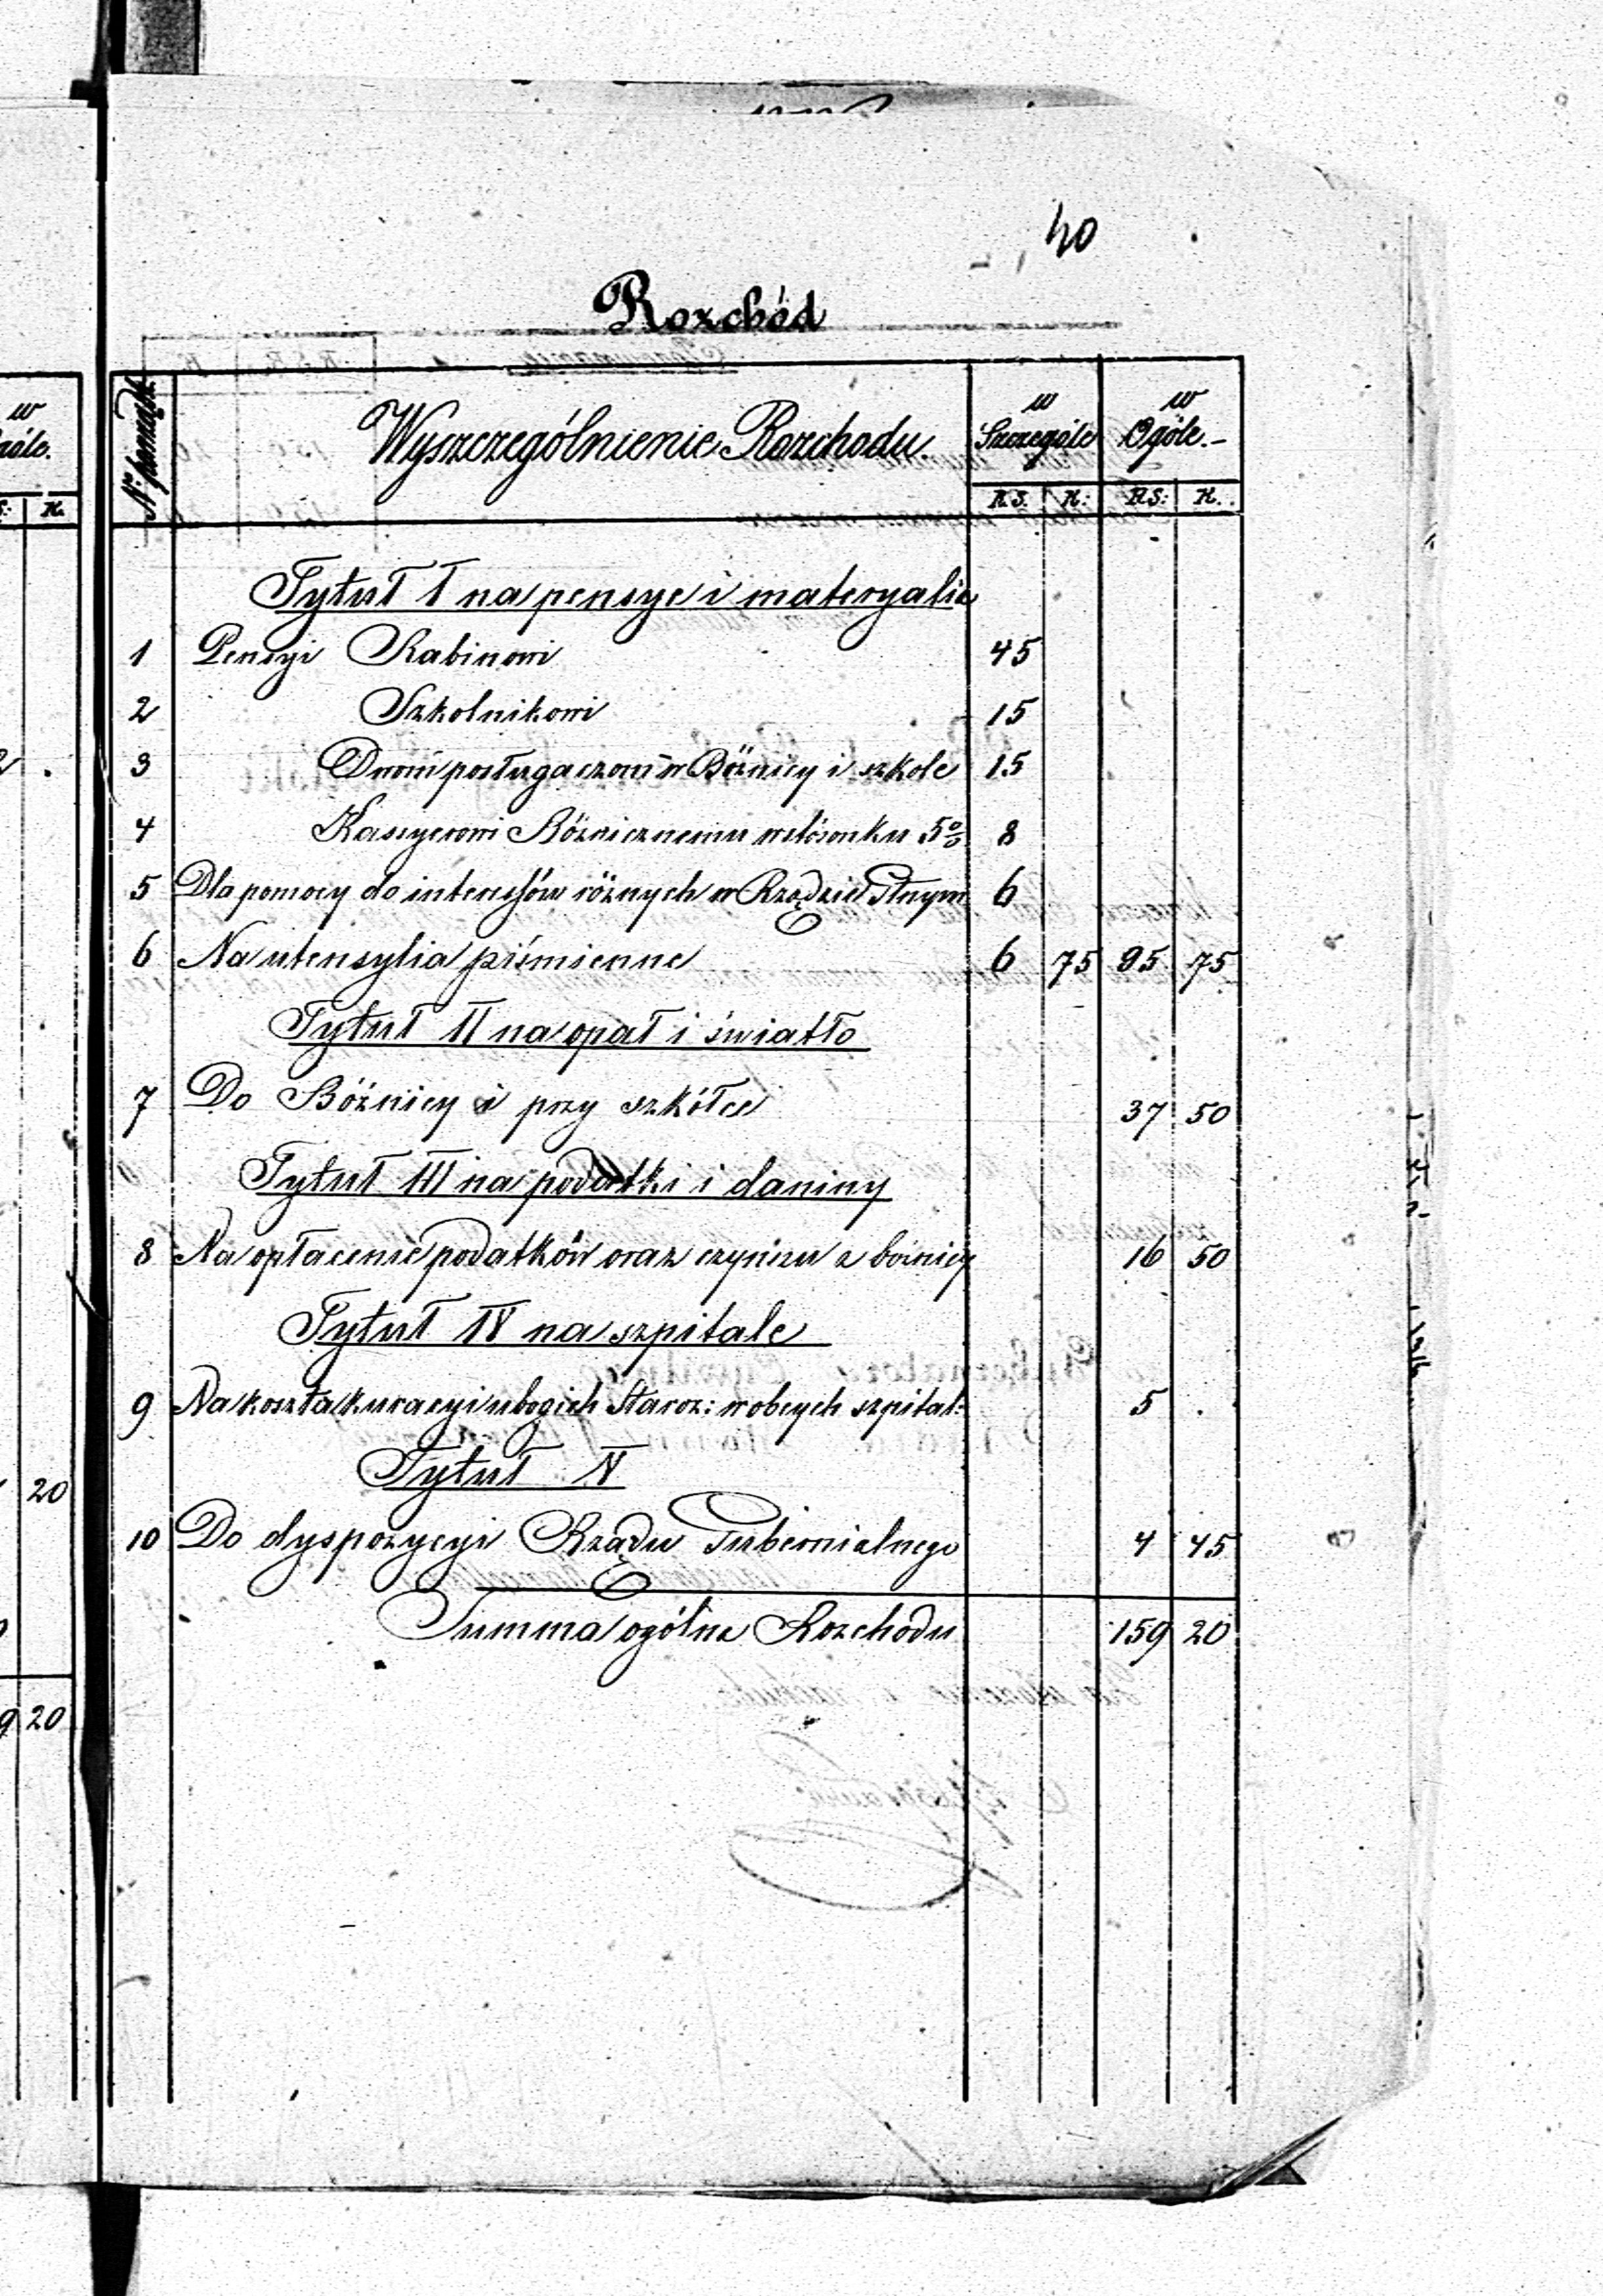 40
Rozchód
Wyszczególnienie Rozchodu.
w Szczególe
w Ogóle.-
R.S. K: R.S: K.
Tytuł I na pensye i materyalia
1 Pensyi Rabinowi 45
2 Szkolnikowi 15
3 Dwom posługaczom w Bóżnicy i szkole 15
4 Kassyerowi Bóżnicznemu w stósonku 5% 8
5 Dla pomocy do interessów różnych w Rządzie Glnym 6
6 Na utensylia piśmienne 6 75 95 75
Tytuł II na opał i światło
7 Do Bóżnicy i przy szkółce 37 50
Tytuł III na podatki i daniny
8 Na opłacenie podatków oraz czynszu z boznicy 16 50
Tytuł IV na szpitale
9 Na koszta kuracyi ubogich Staroz: w obcych szpital: 5 .
Tytuł V
10 Do dyspozycyi Rządu Gubernialnego 4 45
Summa ogólna Rozchodu 159 20
w
K.
20
20